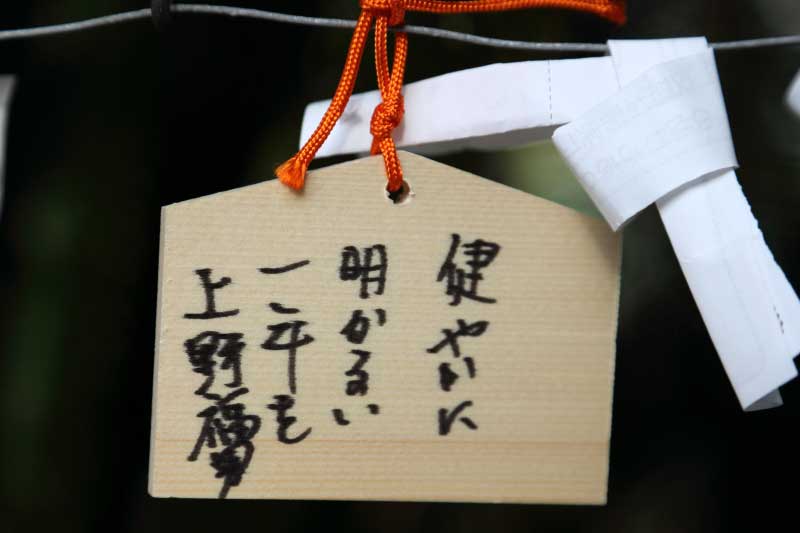 健やかに
明かるい
一年を
上野